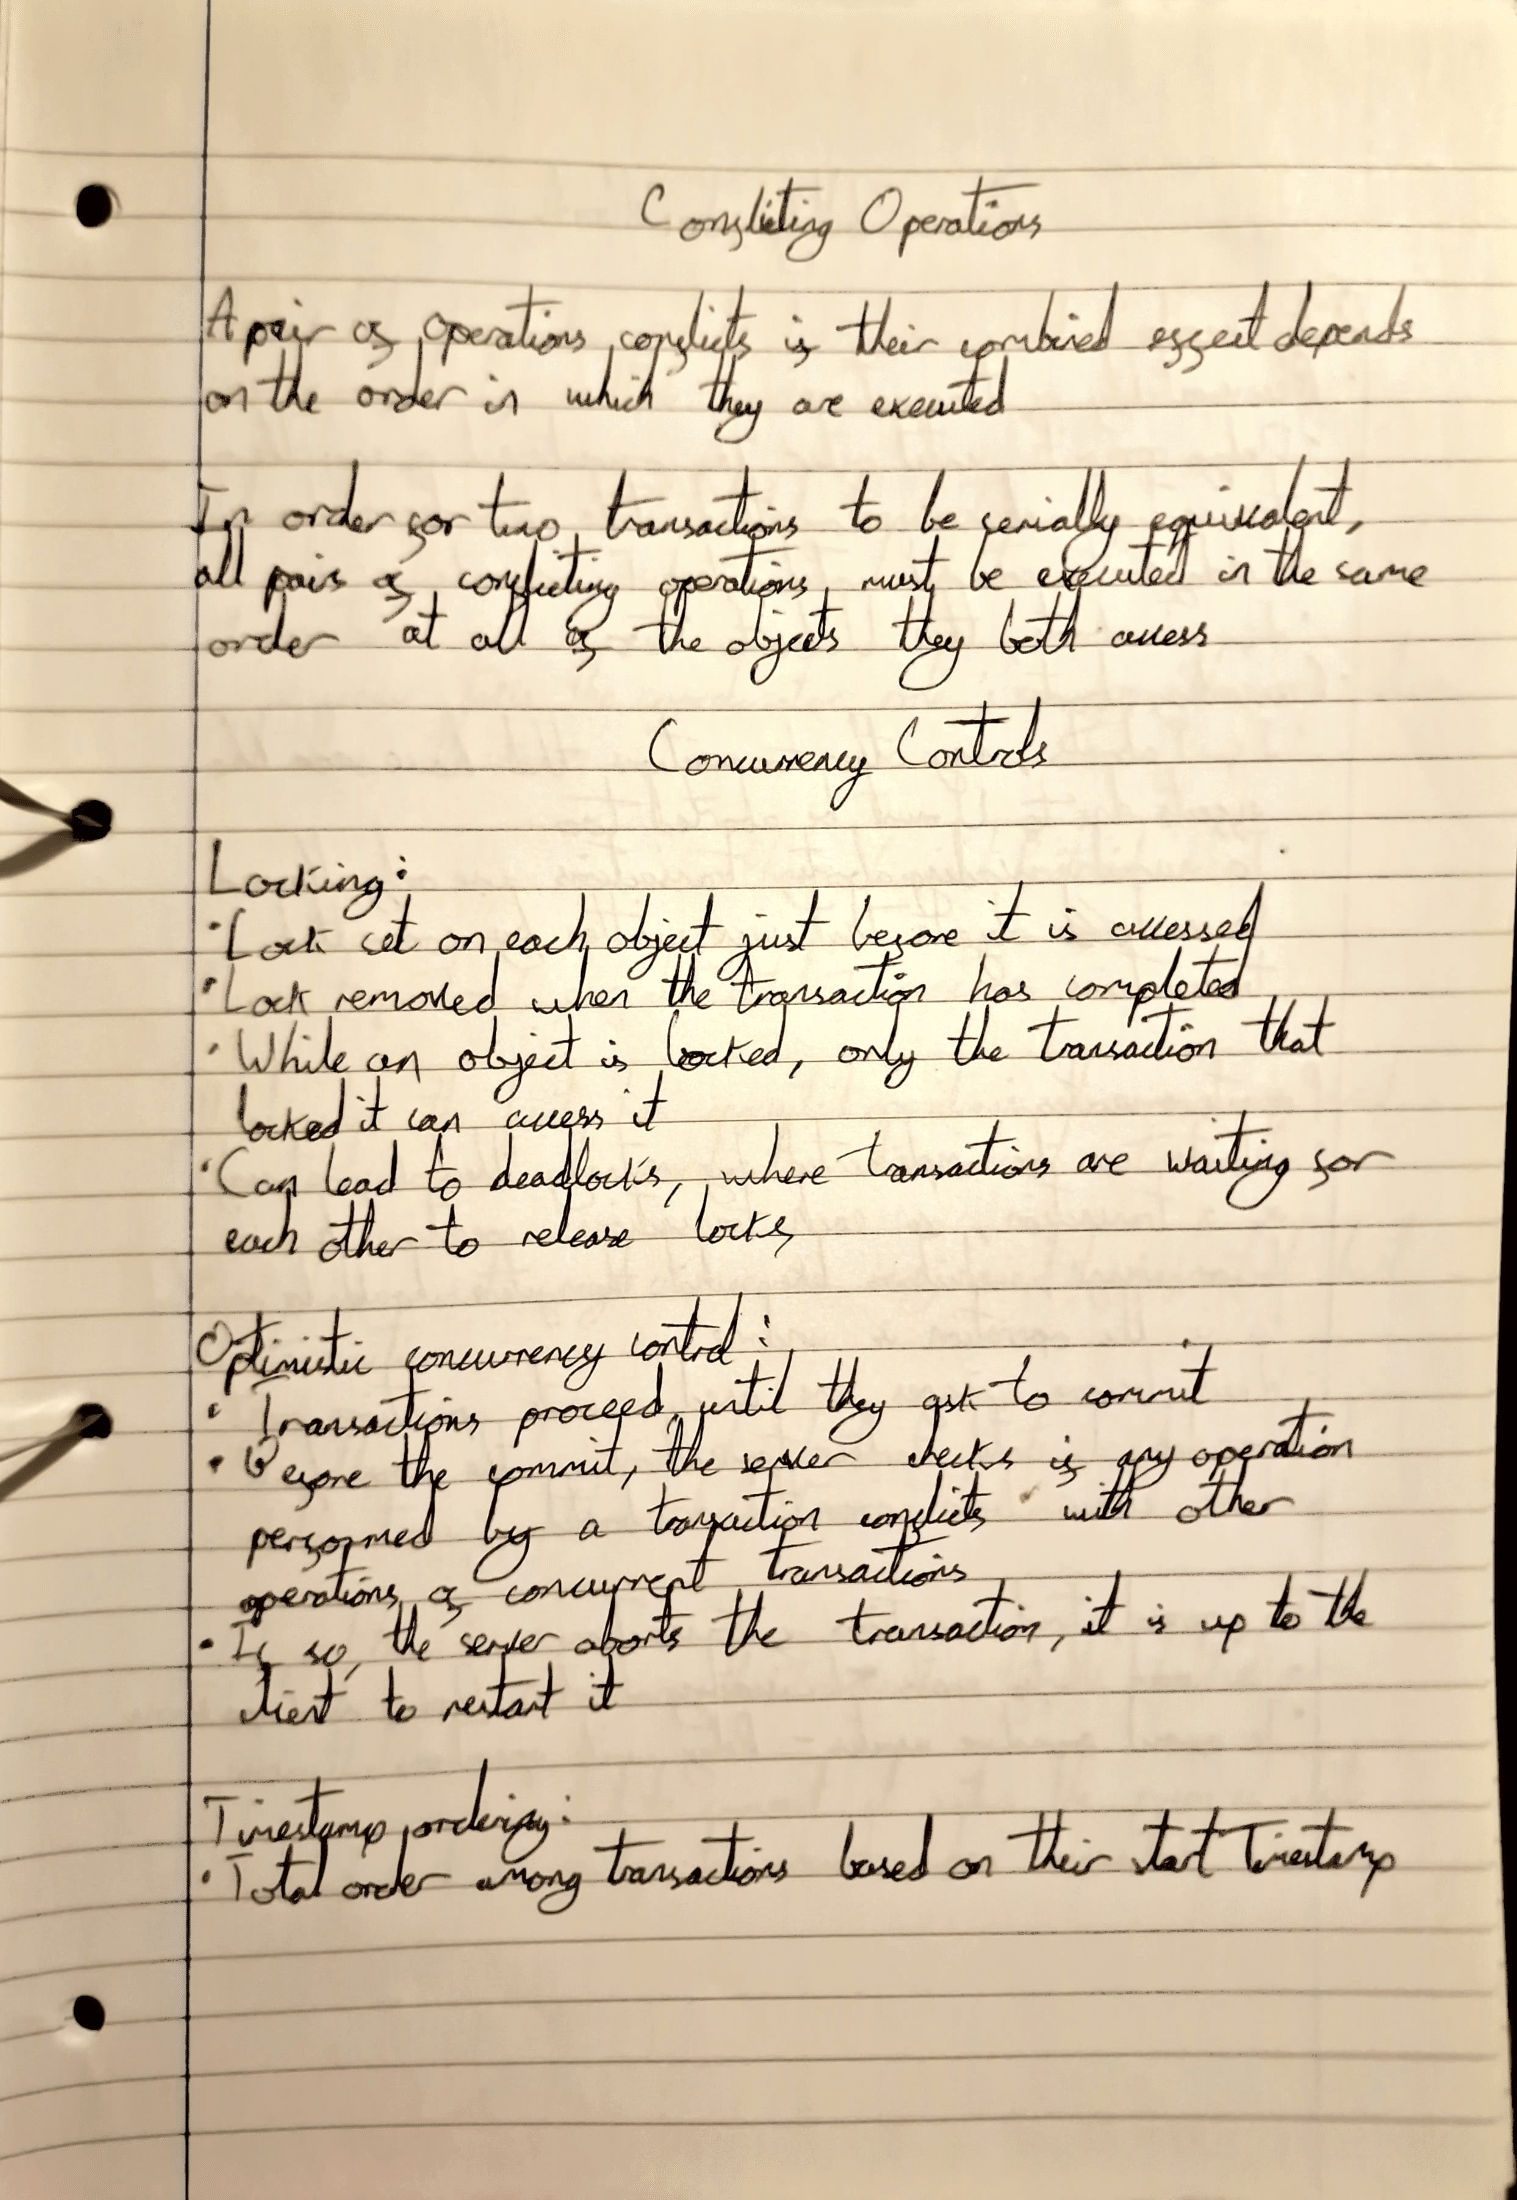 Conflicting Operations
A pair of operations conflicts if their combined effect depends
on the order in which they are executed
In order for two transactions to be serially equivalent,
all pairs of conflicting operations must be executed in the same
order at all of the objects they both access
Concurrency Controls
Locking:
• Lock set on each object just before it is accessed
• Lock removed when the transaction has completed
• While an object is locked, only the transaction that
locked it can access it
• Can lead to deadlocks, where transactions are waiting for
each other to release locks
Optimistic concurrency control:
• Transactions proceed until they ask to commit
• Before the commit, the server checks if any operation
performed by a transaction conflicts with other
operations of concurrent transactions
• If so, the server aborts the transaction, it is up to the
client to restart it
Timestamp ordering:
• Total order among transactions based on their start Timestamp